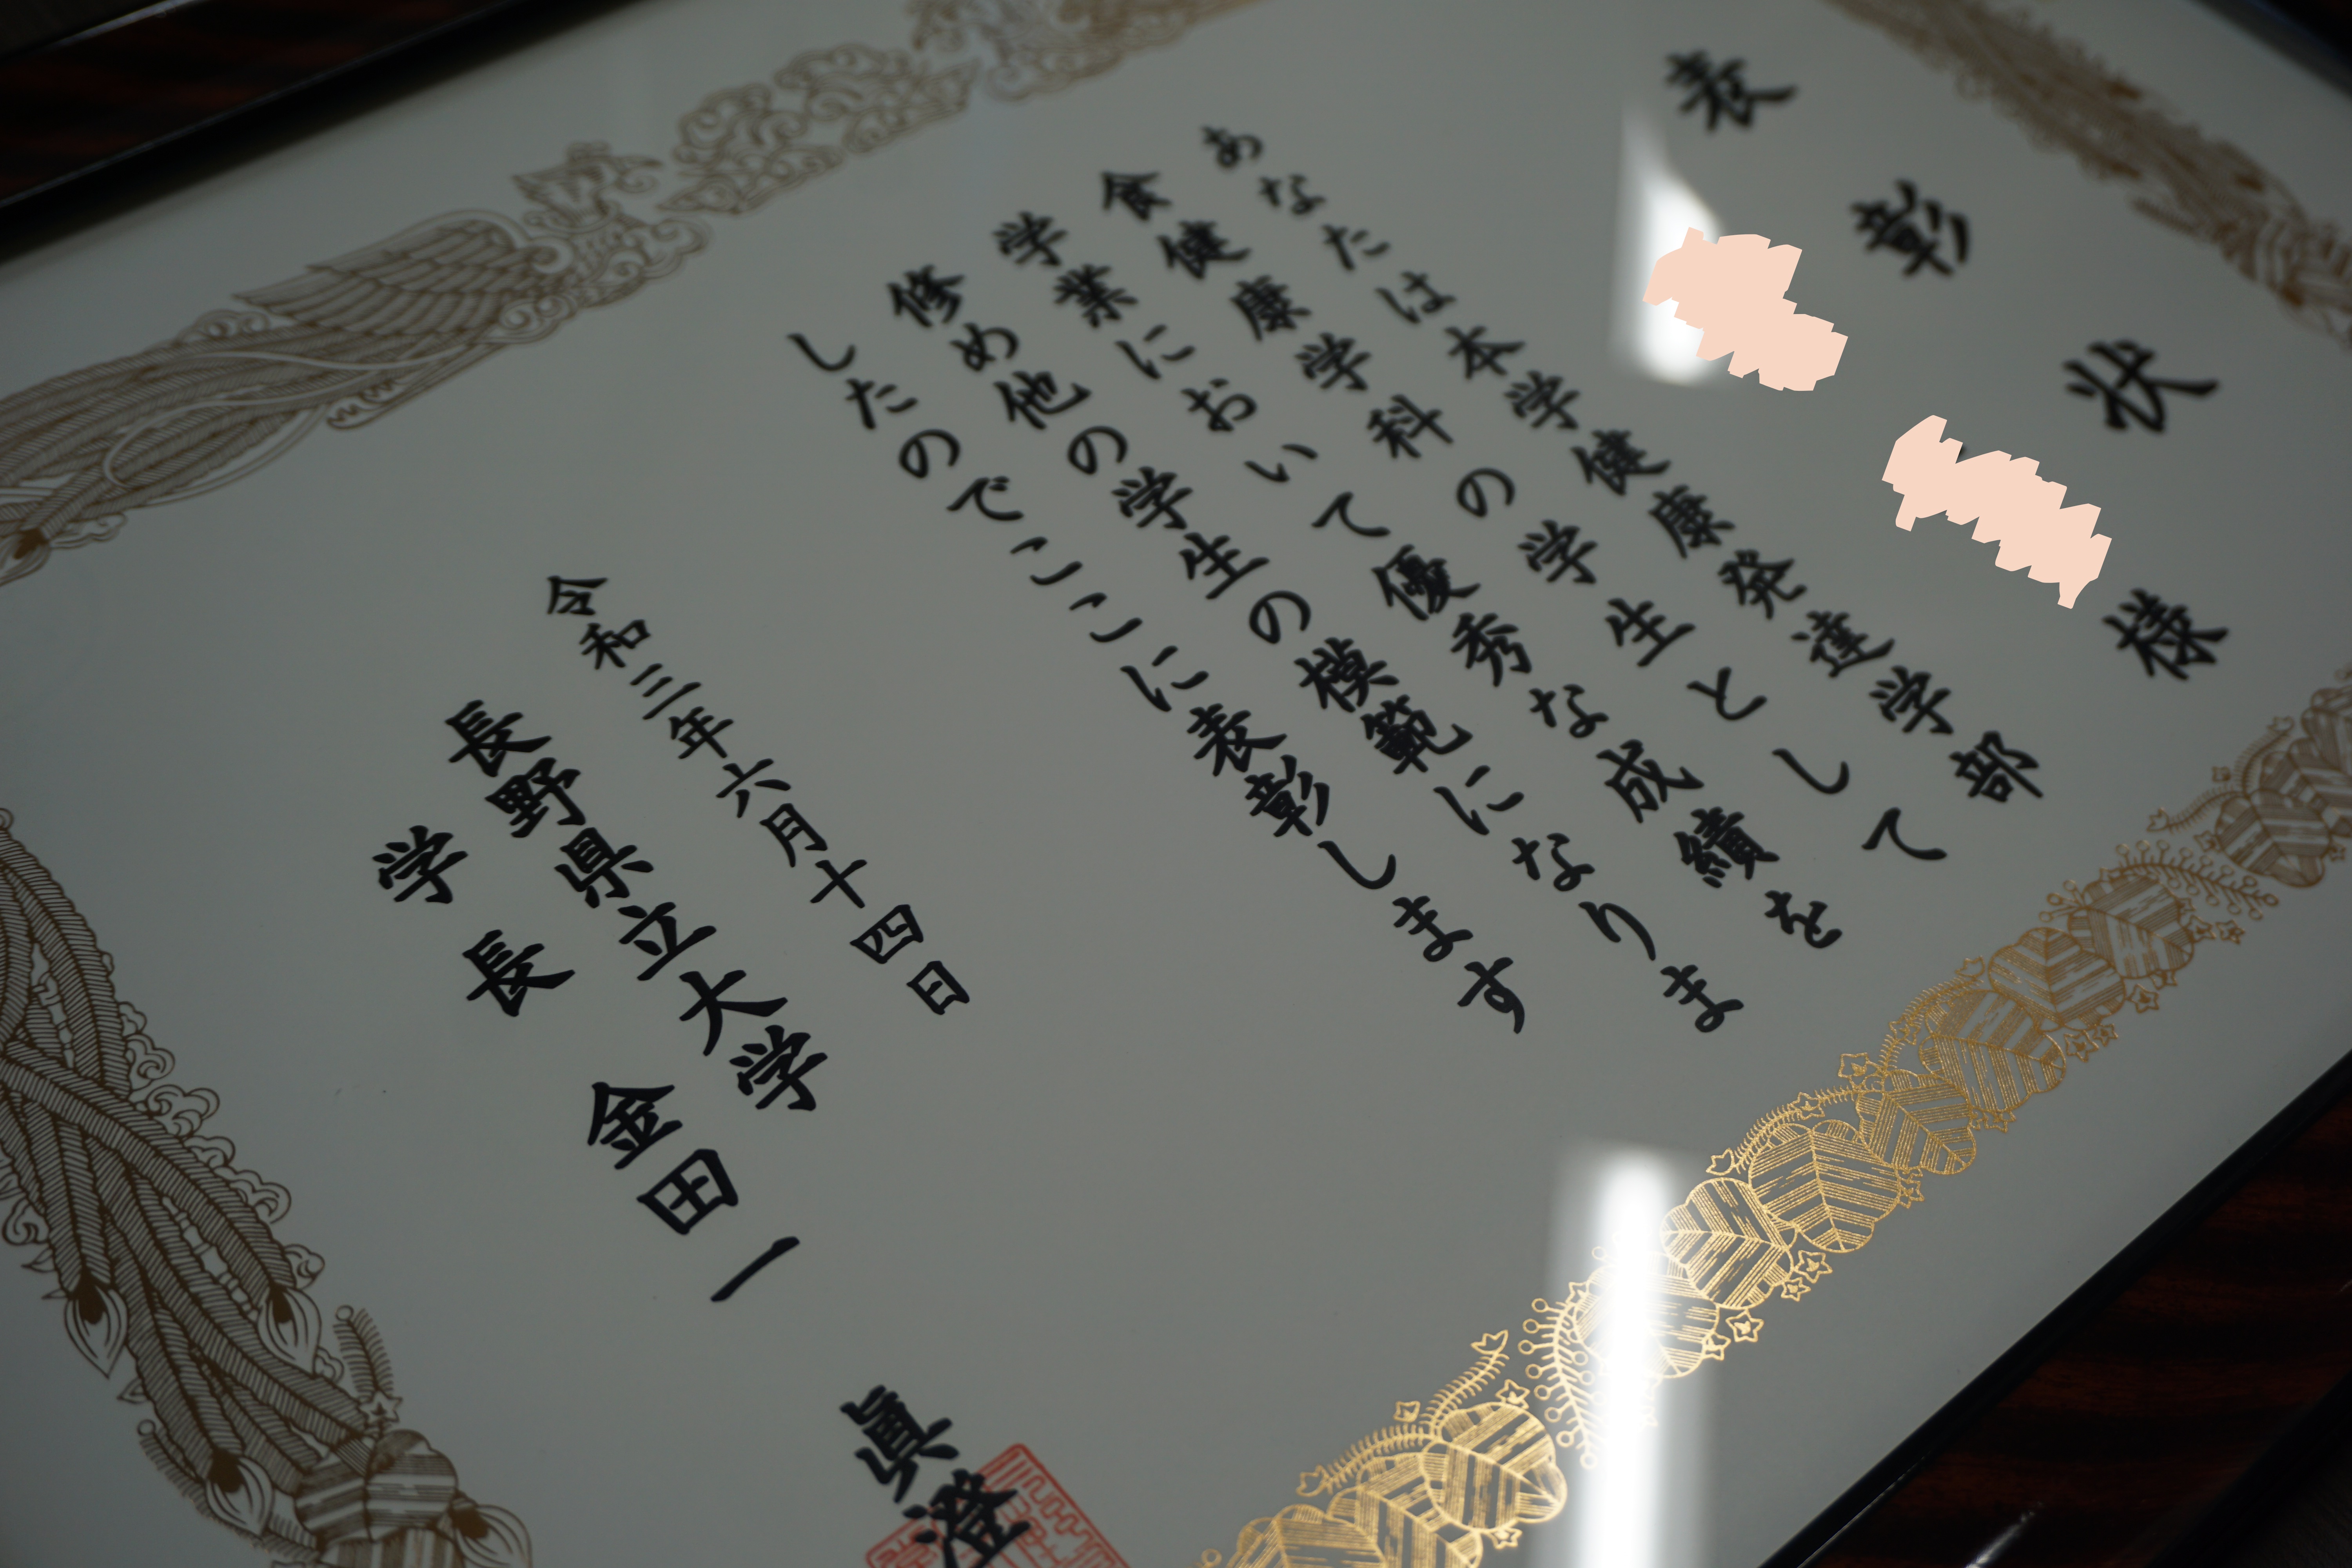 表彰状
様
あなたは本学健康発達学部
食健康学科の学生として
学業において優秀な成績を
修め他の学生の模範になりま
したのでここに表彰します
令和三年六月十四日
長野県立大学
学長 金田一 眞澄